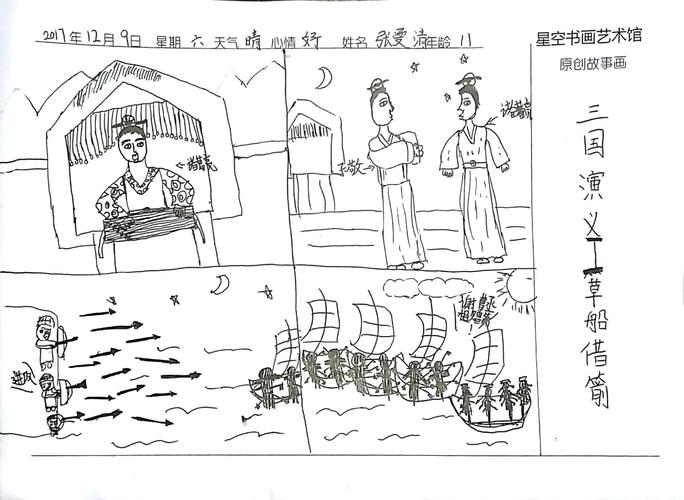 2017年12月9日 星期六 天气晴 心情好 姓名 张雯清 年龄 11
星空书画艺术馆
原创故事画
三国演义——草船借箭
诸葛亮
诸葛亮
谢曹丞
相赠箭
!